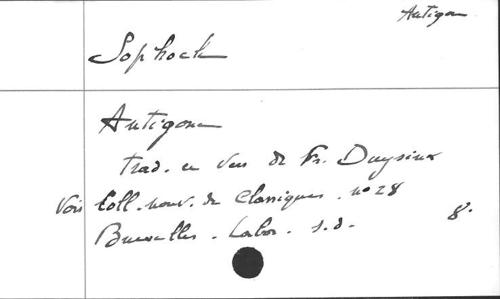 Antigone
Sophocle
Antigone
trad. en vers de Fr. Duysinx
Voir Coll. nouv. de Classiques. n° 28
Bruxelles. Labor. s.d. 8°.